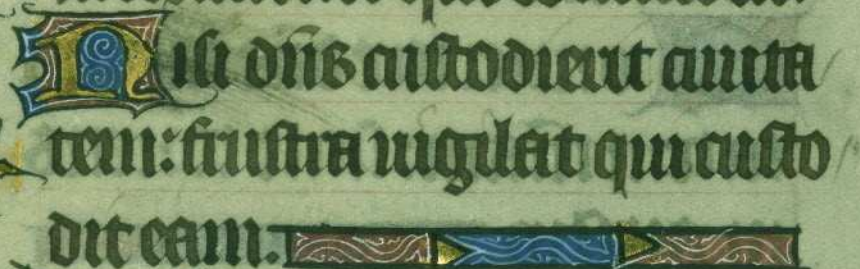 Nisi dñs custodierit ciuita
tem: frustra uigilat qui custo
dit eam.